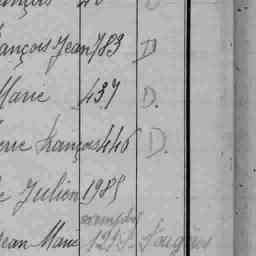 ançois Jean 783 D
Marie 437 D.
erre François 446 D.
e Julien 1985
exempté
Jean Marie 1215 Fougères